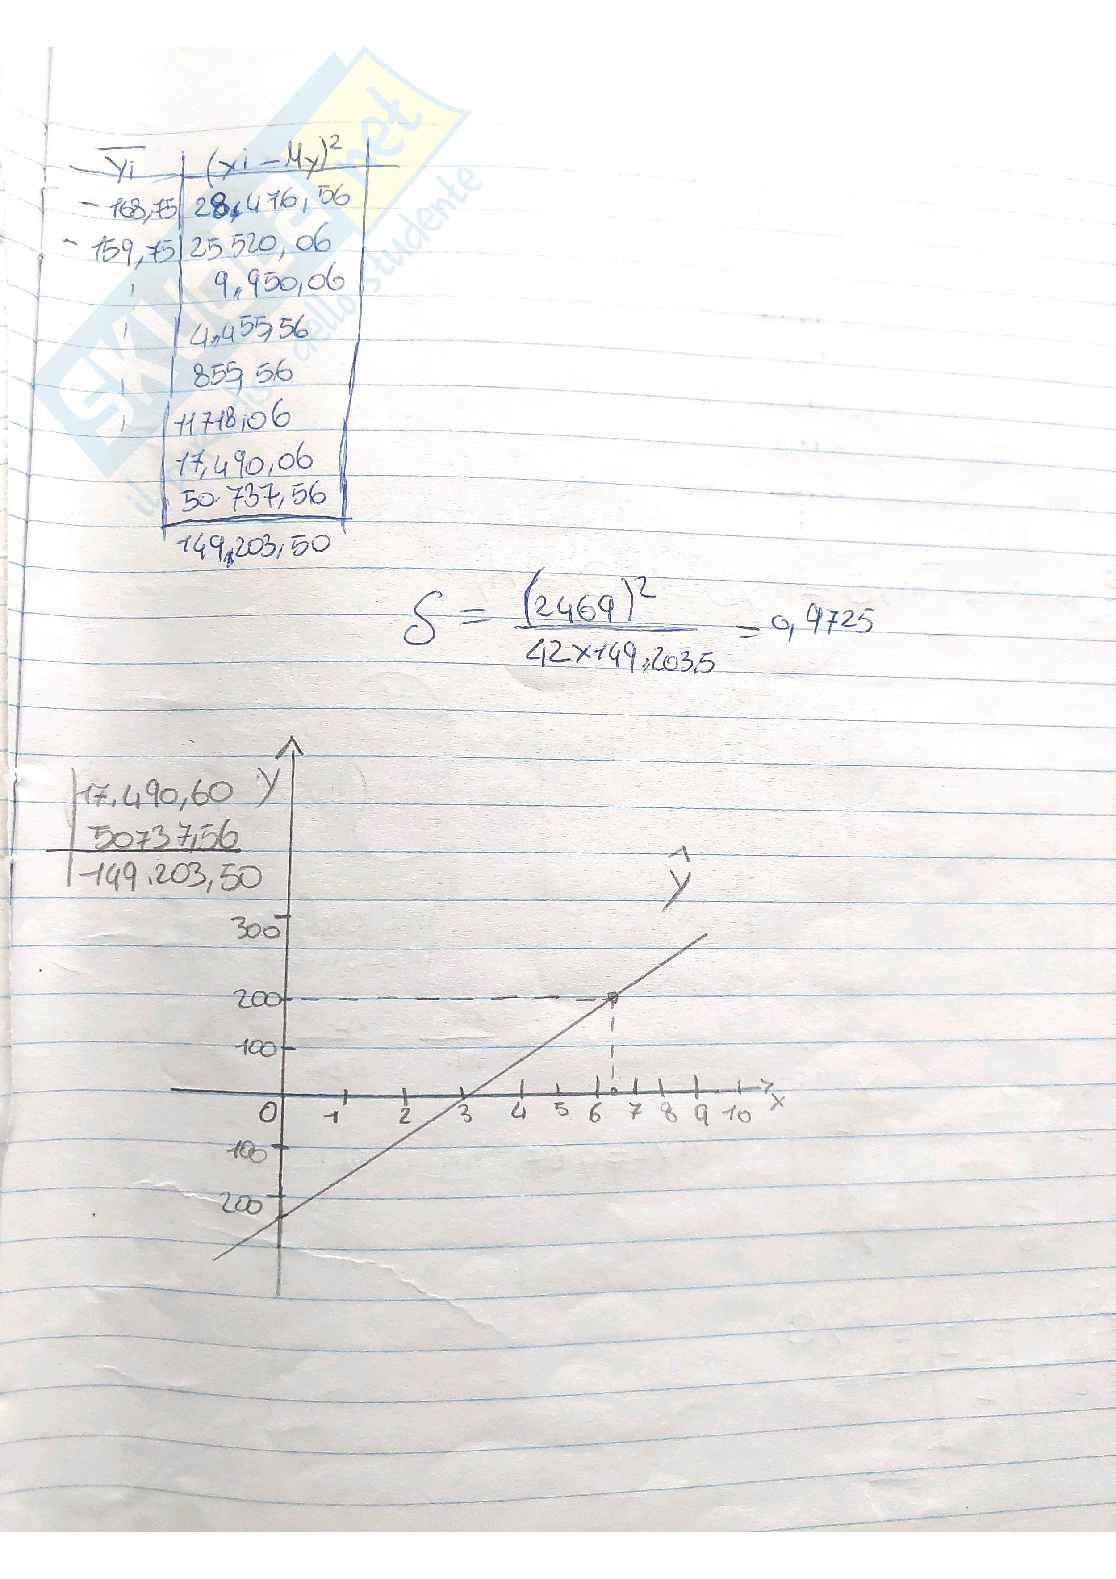 yi | (xi - My)²
- 168,75 | 28.476,56
- 159,75 | 25520,06
9.950,06
4.455,56
855,56
11718,06
17.490,06
50.737,56
149.203,50
δ = (2469)² / 42×149.203,5 = 0,9725
y
17.490,60
50737,56
149.203,50
ŷ
300
200
100
0 1 2 3 4 5 6 7 8 9 10 x
100
200
SKUOLA.net
il portale dello studente